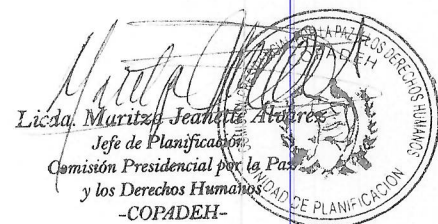 Licda. Maritza Jeanette Álvarez
Jefe de Planificación
Comisión Presidencial por la Paz
y los Derechos Humanos
-COPADEH-
POR LA PAZ Y LOS DERECHOS HUMANOS
COPADEH
UNIDAD DE PLANIFICACIÓN